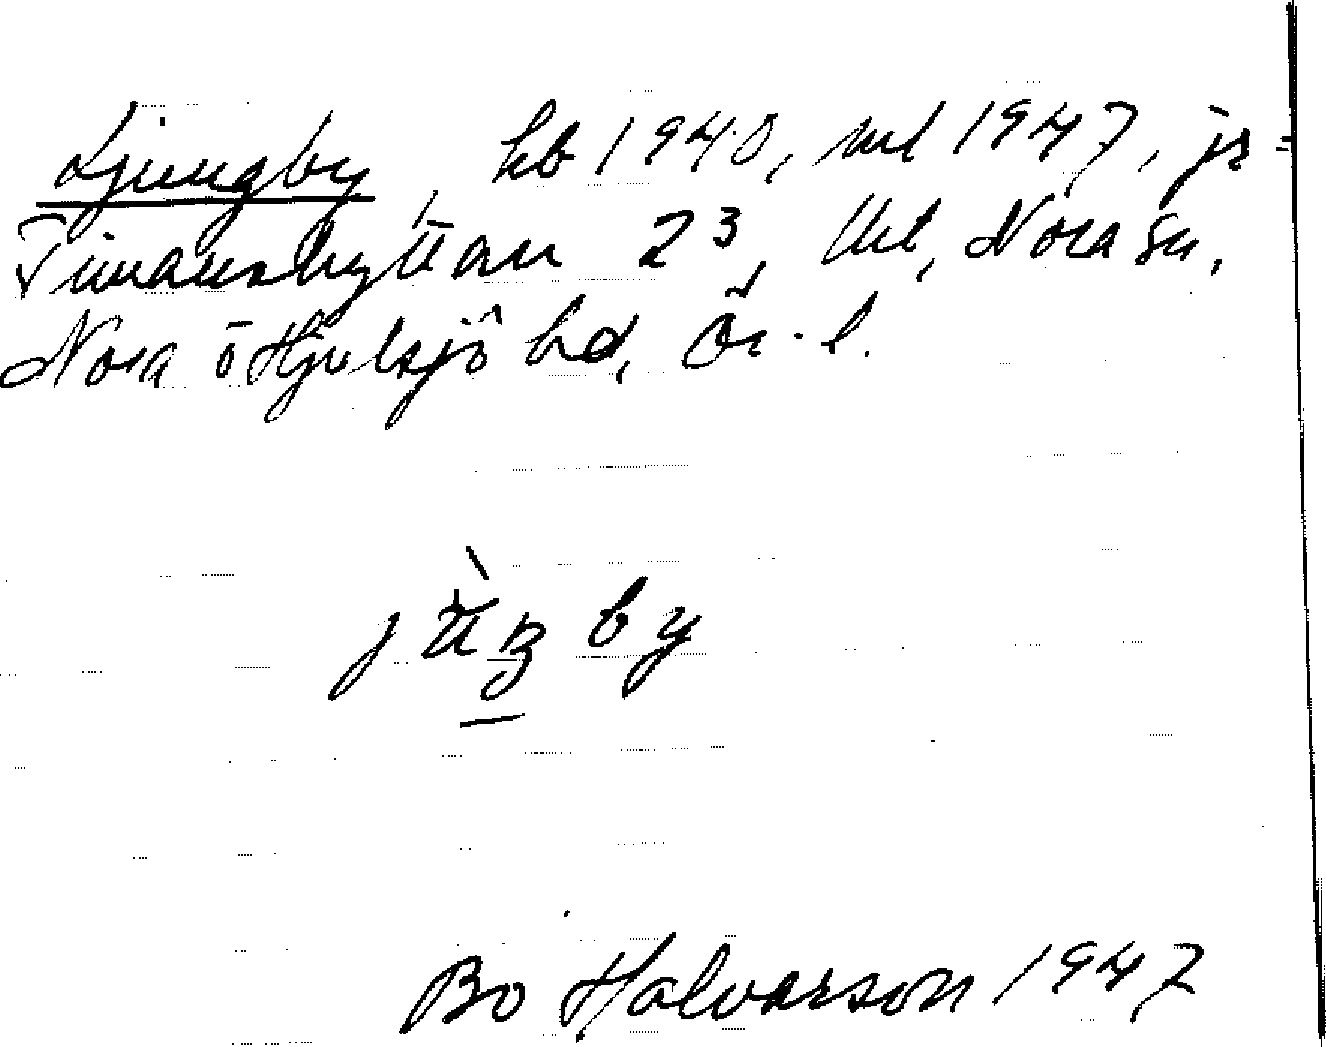 Ljungby, kb 1940, ml 1947, js
Timanshyttan 2³, Vtl, Nora sn,
Nora o Hjulsjö hd, Ör. l.
jùŋby
Bo Halvarson 1947